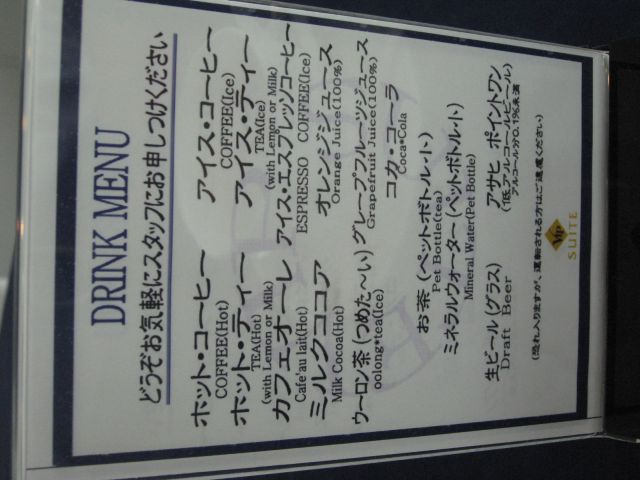 DRINK MENU
どうぞお気軽にスタッフにお申しつけください
ホット・コーヒー アイス・コーヒー
COFFEE(Hot) COFFEE(Ice)
ホット・ティー アイス・ティー
TEA(Hot) TEA(Ice)
(with Lemon or Milk) (with Lemon or Milk)
カフェオーレ アイス・エスプレッソコーヒー
Cafe'au lait(Hot) ESPRESSO COFFEE(Ice)
ミルクココア オレンジジュース
Milk Cocoa(Hot) Orange Juice(100%)
ウーロン茶(つめた~い) グレープフルーツジュース
oolong*tea(Ice) Grapefruit Juice(100%)
コカ・コーラ
Coca*Cola
お茶(ペットボトル・小)
Pet Bottle(tea)
ミネラルウォーター(ペットボトル・小)
Mineral Water(Pet Bottle)
生ビール(グラス) アサヒ ポイントワン
Draft Beer (低アルコールビール)
アルコール分0.1%未満
(恐れ入りますが、運転される方はご遠慮ください)
Vip
SUITE